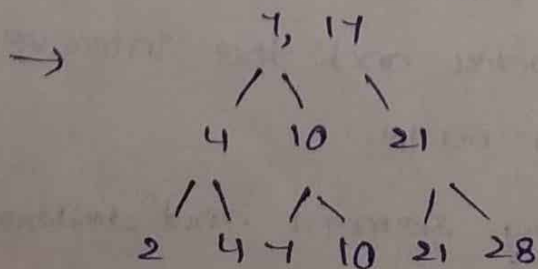 → 7, 17
4 10 21
2 4 7 10 21 28